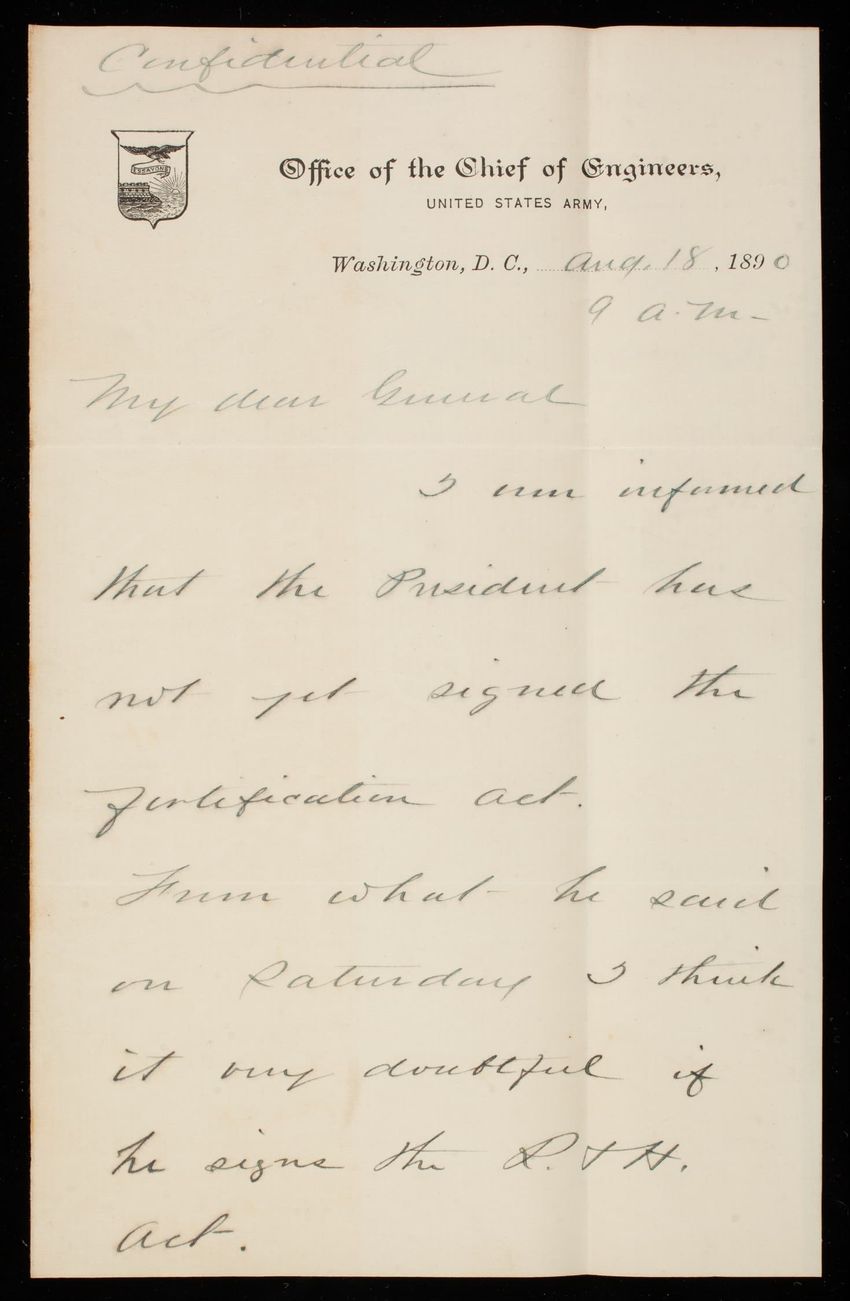 Confidential
ESSAYONS
Office of the Chief of Engineers,
UNITED STATES ARMY,
Washington, D. C., Aug. 18, 1890
9 a.m.
My dear General
I am informed
that the President has
not yet signed the
fortification act.
From what he said
on Saturday I think
it very doubtful if
he signs the R. & H.
Act.